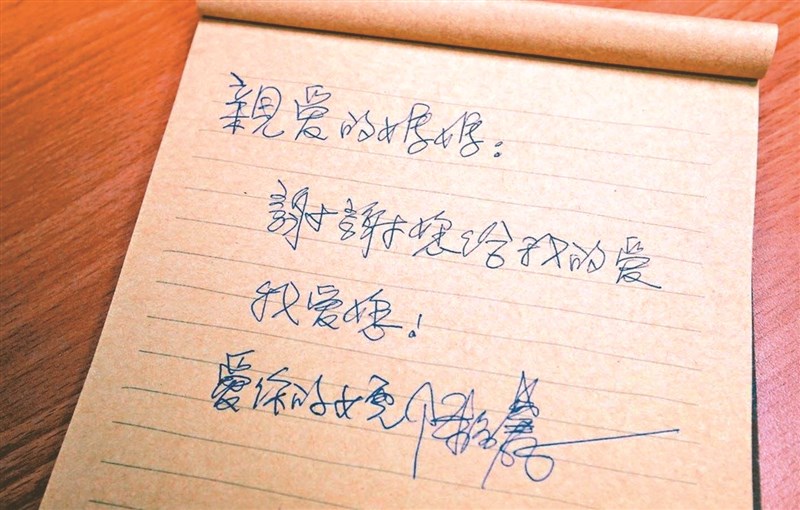 親愛的媽媽：
謝謝給我的愛
我愛媽！
愛你的女兒